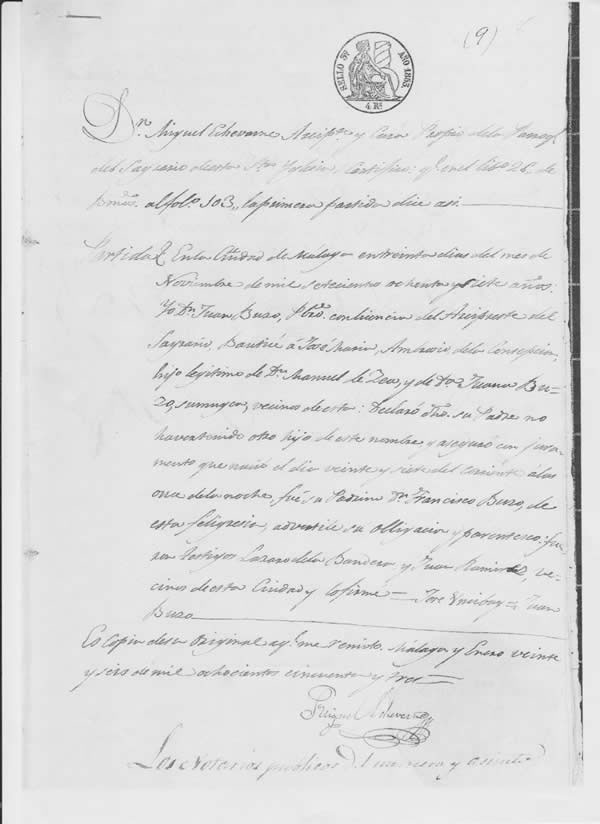 (9)
SELLO 3º AÑO 1853.
4 Rs
Dn. Miguel Echevarne Arcipte. y Cura Propio dela Parroqª
del Sagrario deesta Sta. Iglesia, Certifico: qe. en el libº 26, de
Bmos. alfolº. 103,, laprimera partida dice asi
Partida En la Ciudad de Málaga entreinta dias del mes de
Noviembre de mil setecientos ochenta y siete años:
Yo Dn. Juan Buzo, Pbro. conlicencia del Arcipreste del
Sagrario, Bauticé á José Maria, Ambrosio dela Concepcion,
hijo legitimo de Dn. Manuel de Zea, y de Dª Juana Bu=
zo, sumuger, vecinos de esta: Declaró dho. su Padre no
haver tenido otro hijo de este nombre y aseguró con jura
mento que nació el dia veinte y siete del corriente álas
once dela noche, fué su Padrino Dn. Francisco Buzo, de
esta feligresia, advertile su obligacion y parentesco: fue
ron testigos Lazaro dela Bandera y Juan Ramirez, ve-
cinos de esta Ciudad y lo firmé = José = Juan
Buzo
Es Copia desu Original aqe. me remito. Málaga y Enero veinte
y seis de mil ochocientos cincuenta y tres
Miguel Echevarne
Los Notarios publicos